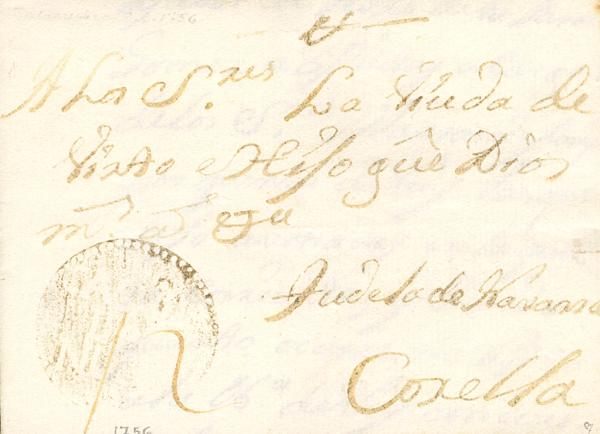 A Los S.res La Viuda de
Virto e Hijo que Dios
m.s a.s &a
Tudela de Navarra
Corella
1756